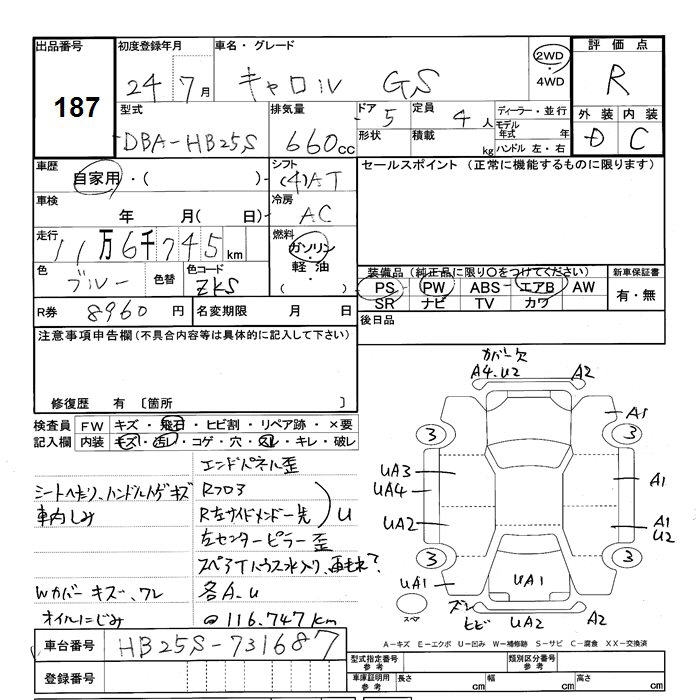 出品番号 初度登録年月 車名・グレード 評価点
187 24 7月 キャロル GS 2WD・4WD R
型式 排気量 ドア 5 定員 4人 ディーラー・並行 外装 内装
DBA-HB25S 660cc 形状 積載 kg モデル年式 年 ハンドル 左・右 D C
車歴 シフト セールスポイント (正常に機能するものに限ります)
自家用・( ) (4)AT
車検 冷房
年 月( 日) AC
走行 燃料
11万6千745km ガソリン・軽油・( )
色 色替 色コード 装備品 (純正品に限り○をつけてください) 新車保証書
ブルー ZKS PS PW ABS エアB AW 有・無
SR ナビ TV カワ
R券 8960円 名変期限 月 日 後日品
注意事項申告欄(不具合内容等は具体的に記入して下さい)
修復歴 有 〔箇所 〕
検査員記入欄 FW キズ・飛石・ヒビ割・リペア跡・×要
内装 キズ・汚レ・コゲ・穴・スレ・キレ・破レ
カバー欠
A4.U2 A2
A1
3 3
UA3 A1
UA4
UA2 A1
U2
3 3
UA1 UA1
スペア ズレ ヒビ UA2 A2
エンドパネル歪
シートへたり、ハンドルトゲキズ Rフロア
車内しみ R左サイドメンバー先 U
左センターピラー歪
スペアTハウス水入り、
Wカバーキズ、ワレ 各A.U
オイルにじみ @116.747km
車台番号 HB25S-731687
登録番号
A-キズ E-エクボ U-凹み W-補修跡 S-サビ C-腐食 XX-交換済
型式指定番号 参考 類別区分番号 参考
車庫証明用 参考 長さ cm 幅 cm 高さ cm